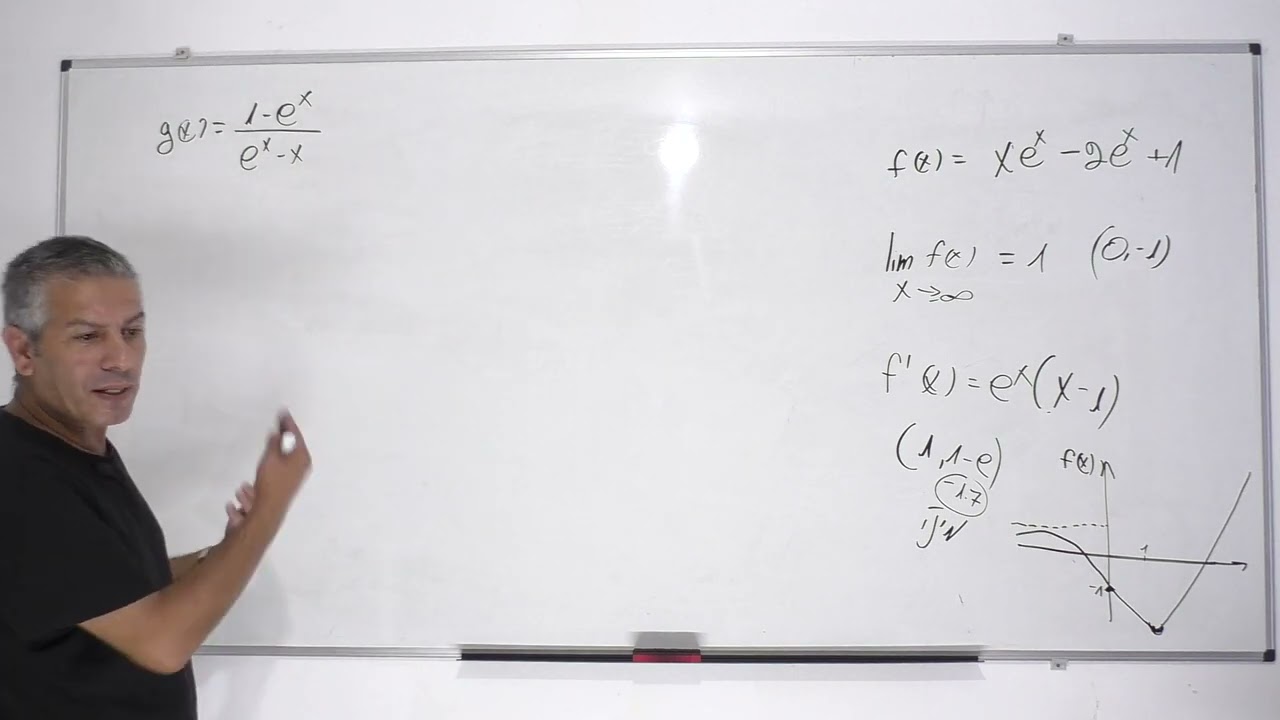 g(x) = \frac{1-e^x}{e^x-x}
f(x) = xe^x - 2e^x + 1
lim f(x) = 1 (0,-1)
x→∞
f'(x) = e^x(x-1)
(1, 1-e)
-1.7
f(x)
1
-1